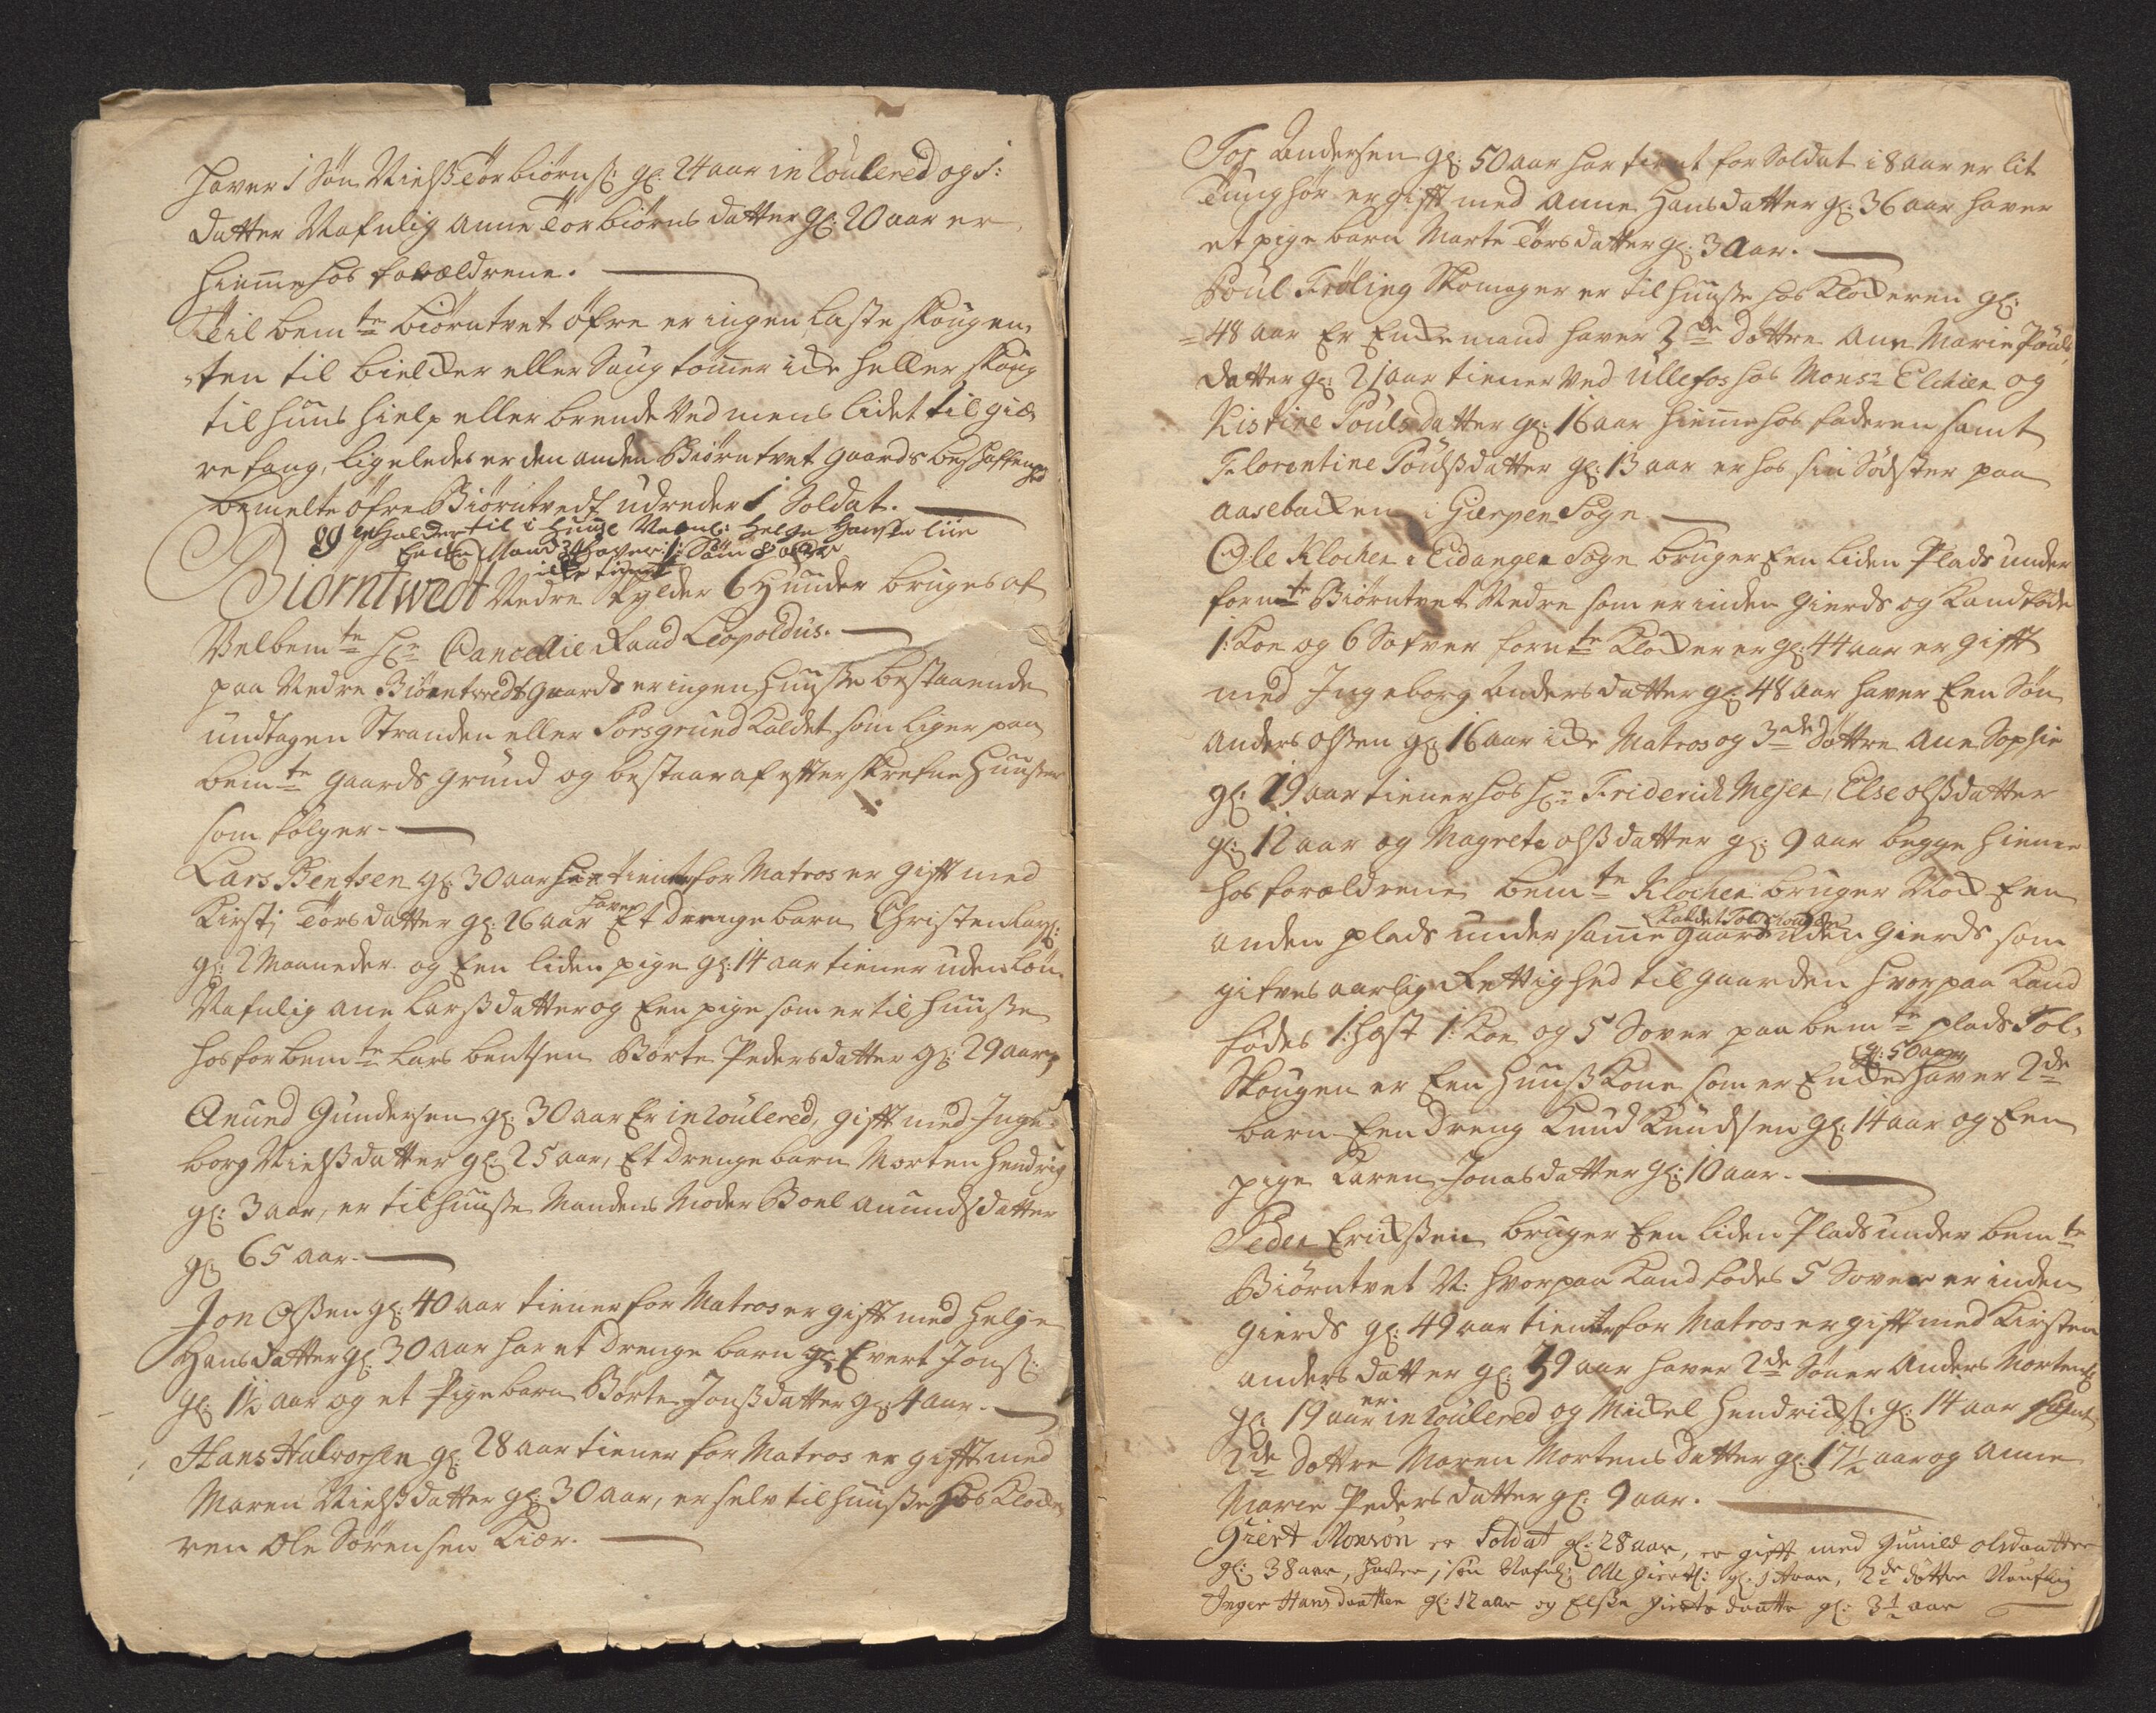 haver 1 Søn Nielß Torbiørnß: gl: 24 aar inroulered og 1:
datter Nafnlig Anne Torbiørns datter gl: 20 aar er
hiemme hos forældrene.
Til bemte Biørntvet øfre er ingen laste skougen,
ten til bielcker eller Saugtømer icke heller skoug
til huus hielp eller brende Ved mens lidet til giæ
re fang, ligeledes er den anden Biørntvet gaards beskaffenhed
bemelte øfre Biørntvedt udreder 1 Soldat.
og opholder til i huuse Nafnl: Helge Hansen liie
Encke Mand haver 1: Søn 8 aar
icke tient
Biørntwedt Nedre skylder 6 Hunder bruges af
Velbemte Hr Cancellie Raad Leopoldus.
paa Nedre Biørntwedt gaard er ingen huuse bestaaende
undtagen Stranden eller Porsgrund Kaldet som liger paa
bemte gaards grund og bestaar af efterskrefne Huuser
som følger
Lars Bentsen gl: 30 aar har tient for Matros er gift med
Kirsti Torsdatter gl: 26 aar haver Et drengebarn Christen Larß:
gl: 2 Maaneder og Een liden pige gl: 14 aar tiener uden løn
Nafnlig Ane Larßdatter og Een pige som er til huuse
hos forbemte Lars bentsen Børte Pedersdatter gl: 29 aar
Anund Gundersen gl: 30 aar Er inroulered, gift med Inge
borg Nielßdatter gl: 25 aar, Et drengebarn Morten Hendrig
gl: 3 aar, er til huuse Mandens Moder Boel Anundsdatter
gl: 65 aar.
Jon Oßen gl: 40 aar tiener for Matros er gift med Helge
Hansdatter gl: 30 aar har et drenge barn Evert Jonß:
gl: 1½ aar og et Pigebarn Børte Jonßdatter gl: 4 aar.
Hans Halvorsen gl: 28 aar tiener for Matros er gifft med
Maren Nielßdatter gl: 30 aar, er selv til huuse hos Klocke
ren Ole Sørensen Kiær.
Tor Andersen gl: 50 aar har tient for Soldat i 8 aar er lit
Tunghør er gifft med Anne Hansdatter gl: 36 aar haver
et pige barn Marte Torsdatter gl: 3 aar.
Poul Frøling Skomager er til huuse hos Klockeren gl:
48 aar Er Enckemand haver 3de døttre Ann Marie Pouls
datter gl: 21 aar tiener Ved Ullefos hos Monsr Elchien og
Kistine Poulsdatter gl: 16 aar hiemme hos faderen samt
Florentine Poulßdatter gl: 13 aar er hos sin Sødster paa
aasebacken i Gierpen Sogn
Ole Klocker i Eidanger Sogn bruger Een liden Plads under
fornte Biørntvet Nedre som er inden gierds og kand føde
1: Koe og 6 Sofver fornte Klocker er gl: 44 aar er gifft
med Ingeborg Andersdatter gl: 48 aar haver Een Søn
Anders Oßen gl: 16 aar icke Matros og 3de Døttre Ane Sophie
gl: 19 aar tiener hos Hr Friderich Mejer, Else Olßdatter
gl: 12 aar og Magrete Olßdatter gl: 9 aar begge hieme
hos forældrene bemte Klocker bruger Nock Een
anden plads under samme gaard Kaldet Tolskougen uden gierds som
gifves aarlig Rettighed til gaarden hvorpaa Kand
fødes 1: hest 1: Koe og 5 Sover paa bemte plads Tol,
Skougen er Een Huußkone som er Encke gl: 50 aar haver 2de
børn Een Dreng Knud Knudsen gl: 14 aar og Een
pige Karen Jonasdatter gl: 10 aar.
Peder Erickßen bruger Een liden Plads under bemte
Biørntvet N: hvorpaa Kand fødes 5 Sover er inden
gierds gl: 49 aar tiente for Matros er gifft med Kirsten
Anders datter gl: 39 aar haver 2de Søner Anders Mortenß
gl: 19 aar er inroulered og Mickel Hendrickß: gl: 14 aar
2de Døttre Maren Mortens datter gl: 17½ aar og Anne
Marie Peders datter gl: 9 aar.
Giert Monsøn er Soldat gl: 28 aar, er gift med Gunild olsdaatter
gl: 38 aar, haver 1 søn Nafnl: Olle Giertß: gl: 1 Aar, 2de døttre Naufnlig
Inger Hans daatter gl: 12 aar og Elsse Gierts daatter gl: 3½ aar